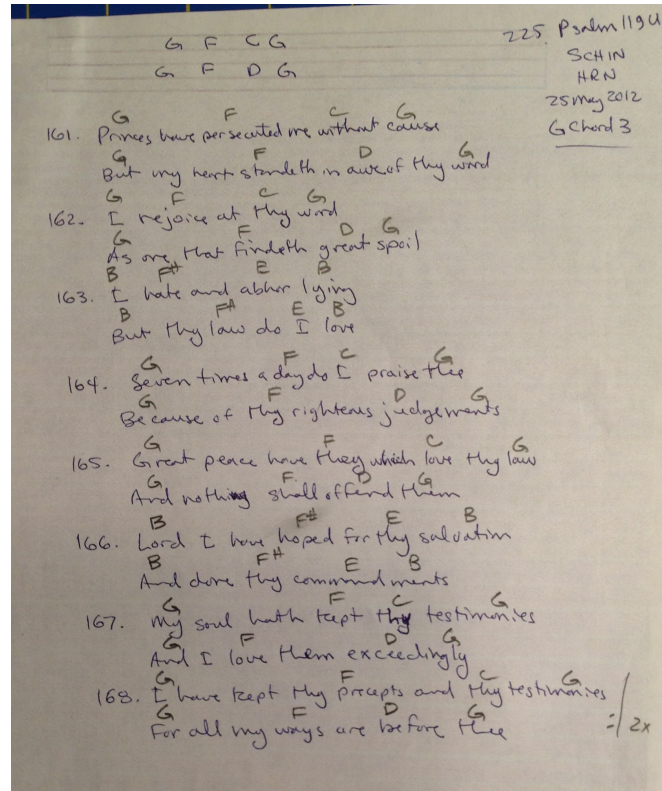 G F C G
G F D G
225. Psalm 119U
SCHIN
HRN
25 May 2012
G Chord 3
G F C G
161. Princes have persecuted me without cause
G F D G
But my heart standeth in awe of thy word
G F C G
162. I rejoice at thy word
G F D G
As one that findeth great spoil
B F# E B
163. I hate and abhor lying
B F# E B
But thy law do I love
G F C G
164. Seven times a day do I praise thee
G F D G
Because of thy righteous judgements
G F C G
165. Great peace have they which love thy law
G F D G
And nothing shall offend them
B F# E B
166. Lord I have hoped for thy salvation
B F# E B
And done thy commandments
G F C G
167. My soul hath kept thy testimonies
G F D G
And I love them exceedingly
G F C G
168. I have kept thy precepts and thy testimonies
G F D G
For all my ways are before thee
2x